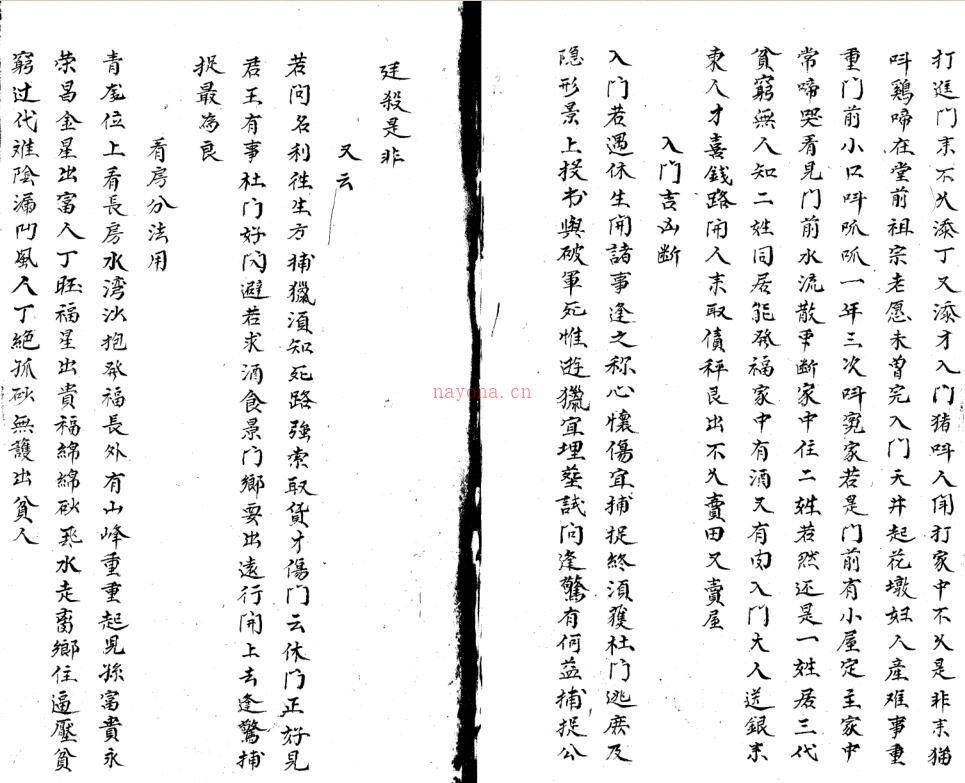 打進门來不久添丁又添才入门猪呌人闹打家中不久是非來猫
呌鷄啼在堂前祖宗老愿未曽完入门天井起花墩妇人産难事重
重门前小口呌呱呱一年三次呌寃家若是门前有小屋定主家中
常啼哭看見门前水流散更断家中住二姓若然还是一姓居三代
貧窮無人知二姓同居能發福家中有酒又有肉入门大人送銀來
東人才喜錢路闹人來取债秤艮出不久賣田又賣屋
入门吉凶断
入门若遇休生開諸事逢之称心懷傷宜捕捉終須獲杜门逃庶及
隐形景上投书與破軍死惟遊獵宜埋塟試问逢驚有何益捕捉公
廷殺是非
又云
若问名利往生方捕獵須知死路強索取货才傷门云休门正好見
君王有事杜门好闪避若求酒食景门鄉要出遠行開上去逢驚捕
捉最為良
看房分法用
青龙位上看長房水湾沙抱發福長外有山峰重重起児孫富貴永
荣昌金星出富人丁旺福星出貴福綿綿砂飛水走离鄉住逼壓貧
窮过代雅陰漏凹風人丁絕孤砂無護出貧人
nayona.cn